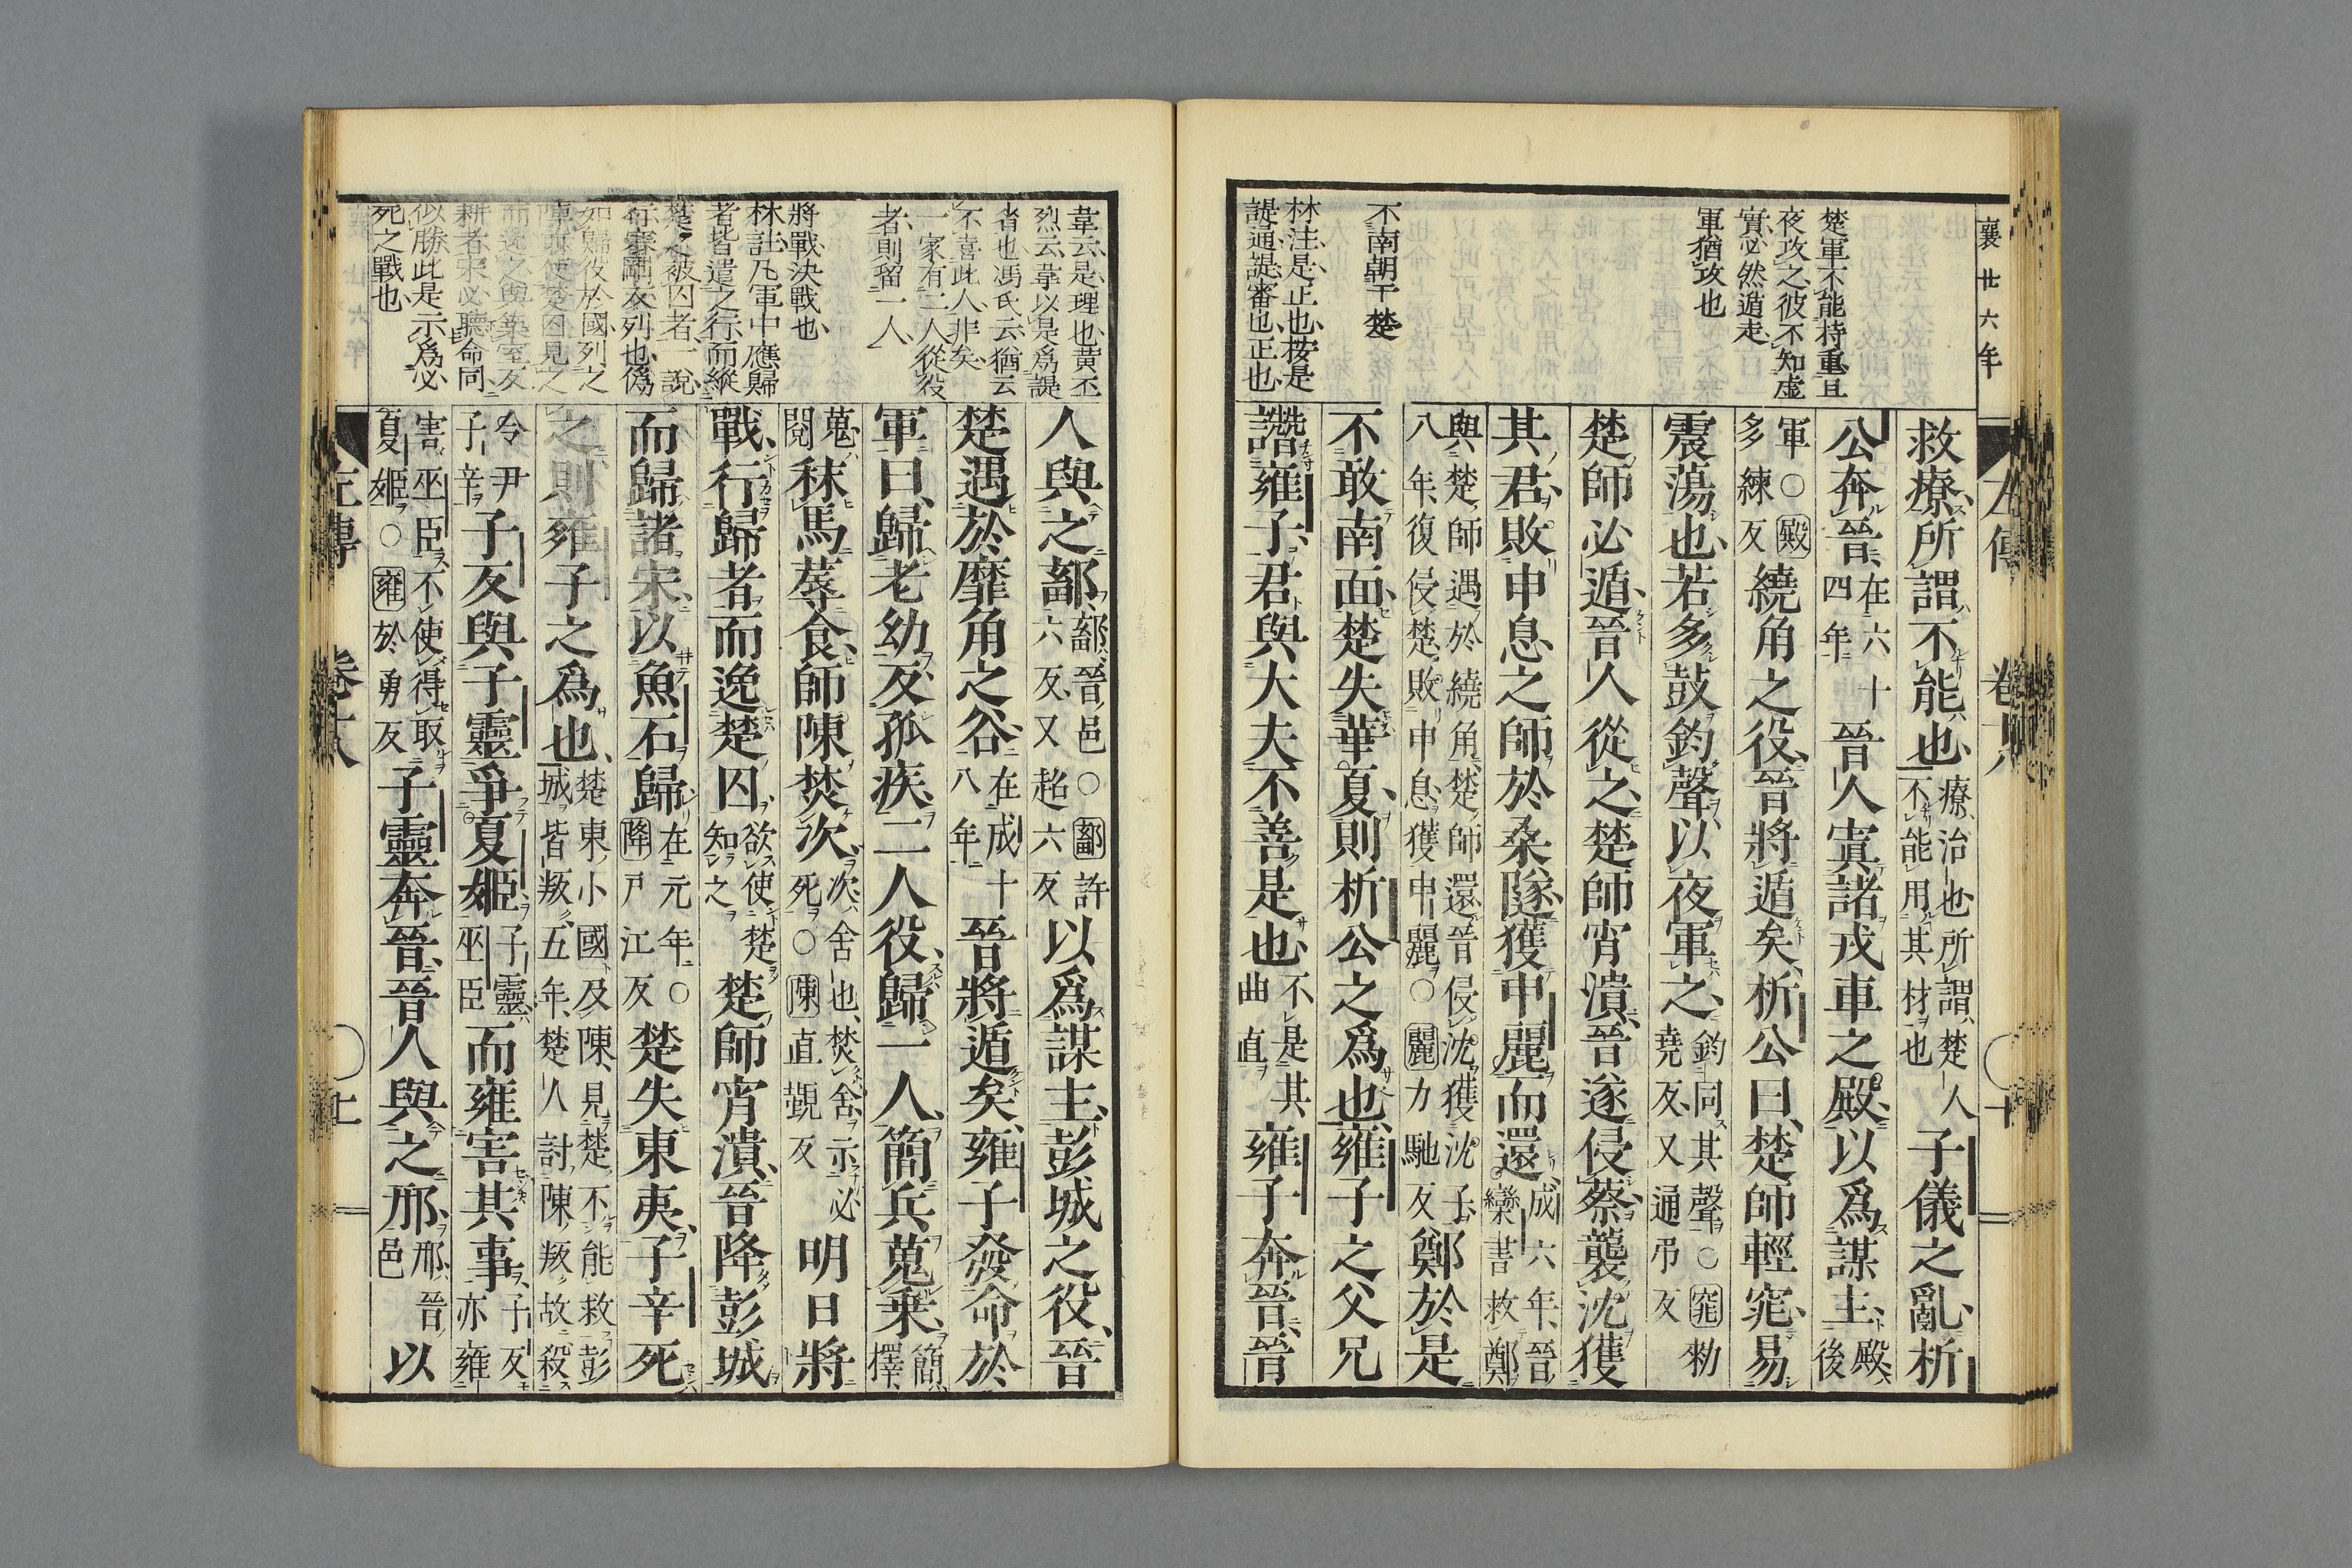 襄廿六年
楚軍不能持重且
夜攻之彼不知虚
實必然遁走
軍猶攻也
不南朝于楚
林注是正也按是
諟通諟審也正也
救療所謂不能也療治也所謂楚人不能用其材也子儀之亂析
公奔晉在六十四年晉人寘諸戎車之殿以爲謀主殿後
軍○殿多練反繞角之役晉將遁矣析公曰楚師輕窕易
震蕩也若多鼓鈞聲以夜軍之鈞同其聲○窕勑堯反又通弔反
楚師必遁晉人從之楚師宵潰晉遂侵蔡襲沈獲
其君敗申息之師於桑隧獲申麗而還成六年晉欒書救鄭
與楚師遇於繞角楚師還晉侵沈獲沈子八年復侵楚敗申息獲申麗○麗力馳反鄭於是
不敢南面楚失華夏則析公之爲也雍子之父兄
譖雍子君與大夫不善是也不是其曲直雍子奔晉晉
韋云是理也黃丕
烈云韋以是爲諟
者也馮氏云猶云
不喜此人非矣
一家有二人從役
者則留一人
將戰決戰也
林註凡軍中應歸
者皆遣之行而縱
楚之被囚者一說
行寮嗣反列也僞
如歸役於國列之
似勝此是示爲必
死之戰也
人與之鄐鄐晉邑○鄐許六反又超六反以爲謀主彭城之役晉
楚遇於靡角之谷在成十八年晉將遁矣雍子發命於
軍曰歸老幼反孤疾二人役歸一人簡兵蒐乘簡擇
蒐閱秣馬蓐食師陳焚次次舍也焚舍示必死○陳直覲反明日將
戰行歸者而逸楚囚欲使楚知之楚師宵潰晉降彭城
而歸諸宋以魚石歸在元年○降戶江反楚失東夷子辛死
之則雍子之爲也楚東小國及陳見楚不能救彭城皆叛五年楚人討陳叛故殺
令尹子辛子反與子靈爭夏姬子靈巫臣而雍害其事子反亦雍
害巫臣不使得取夏姬○雍於勇反子靈奔晉晉人與之邢邢晉邑以
左傳 卷十八